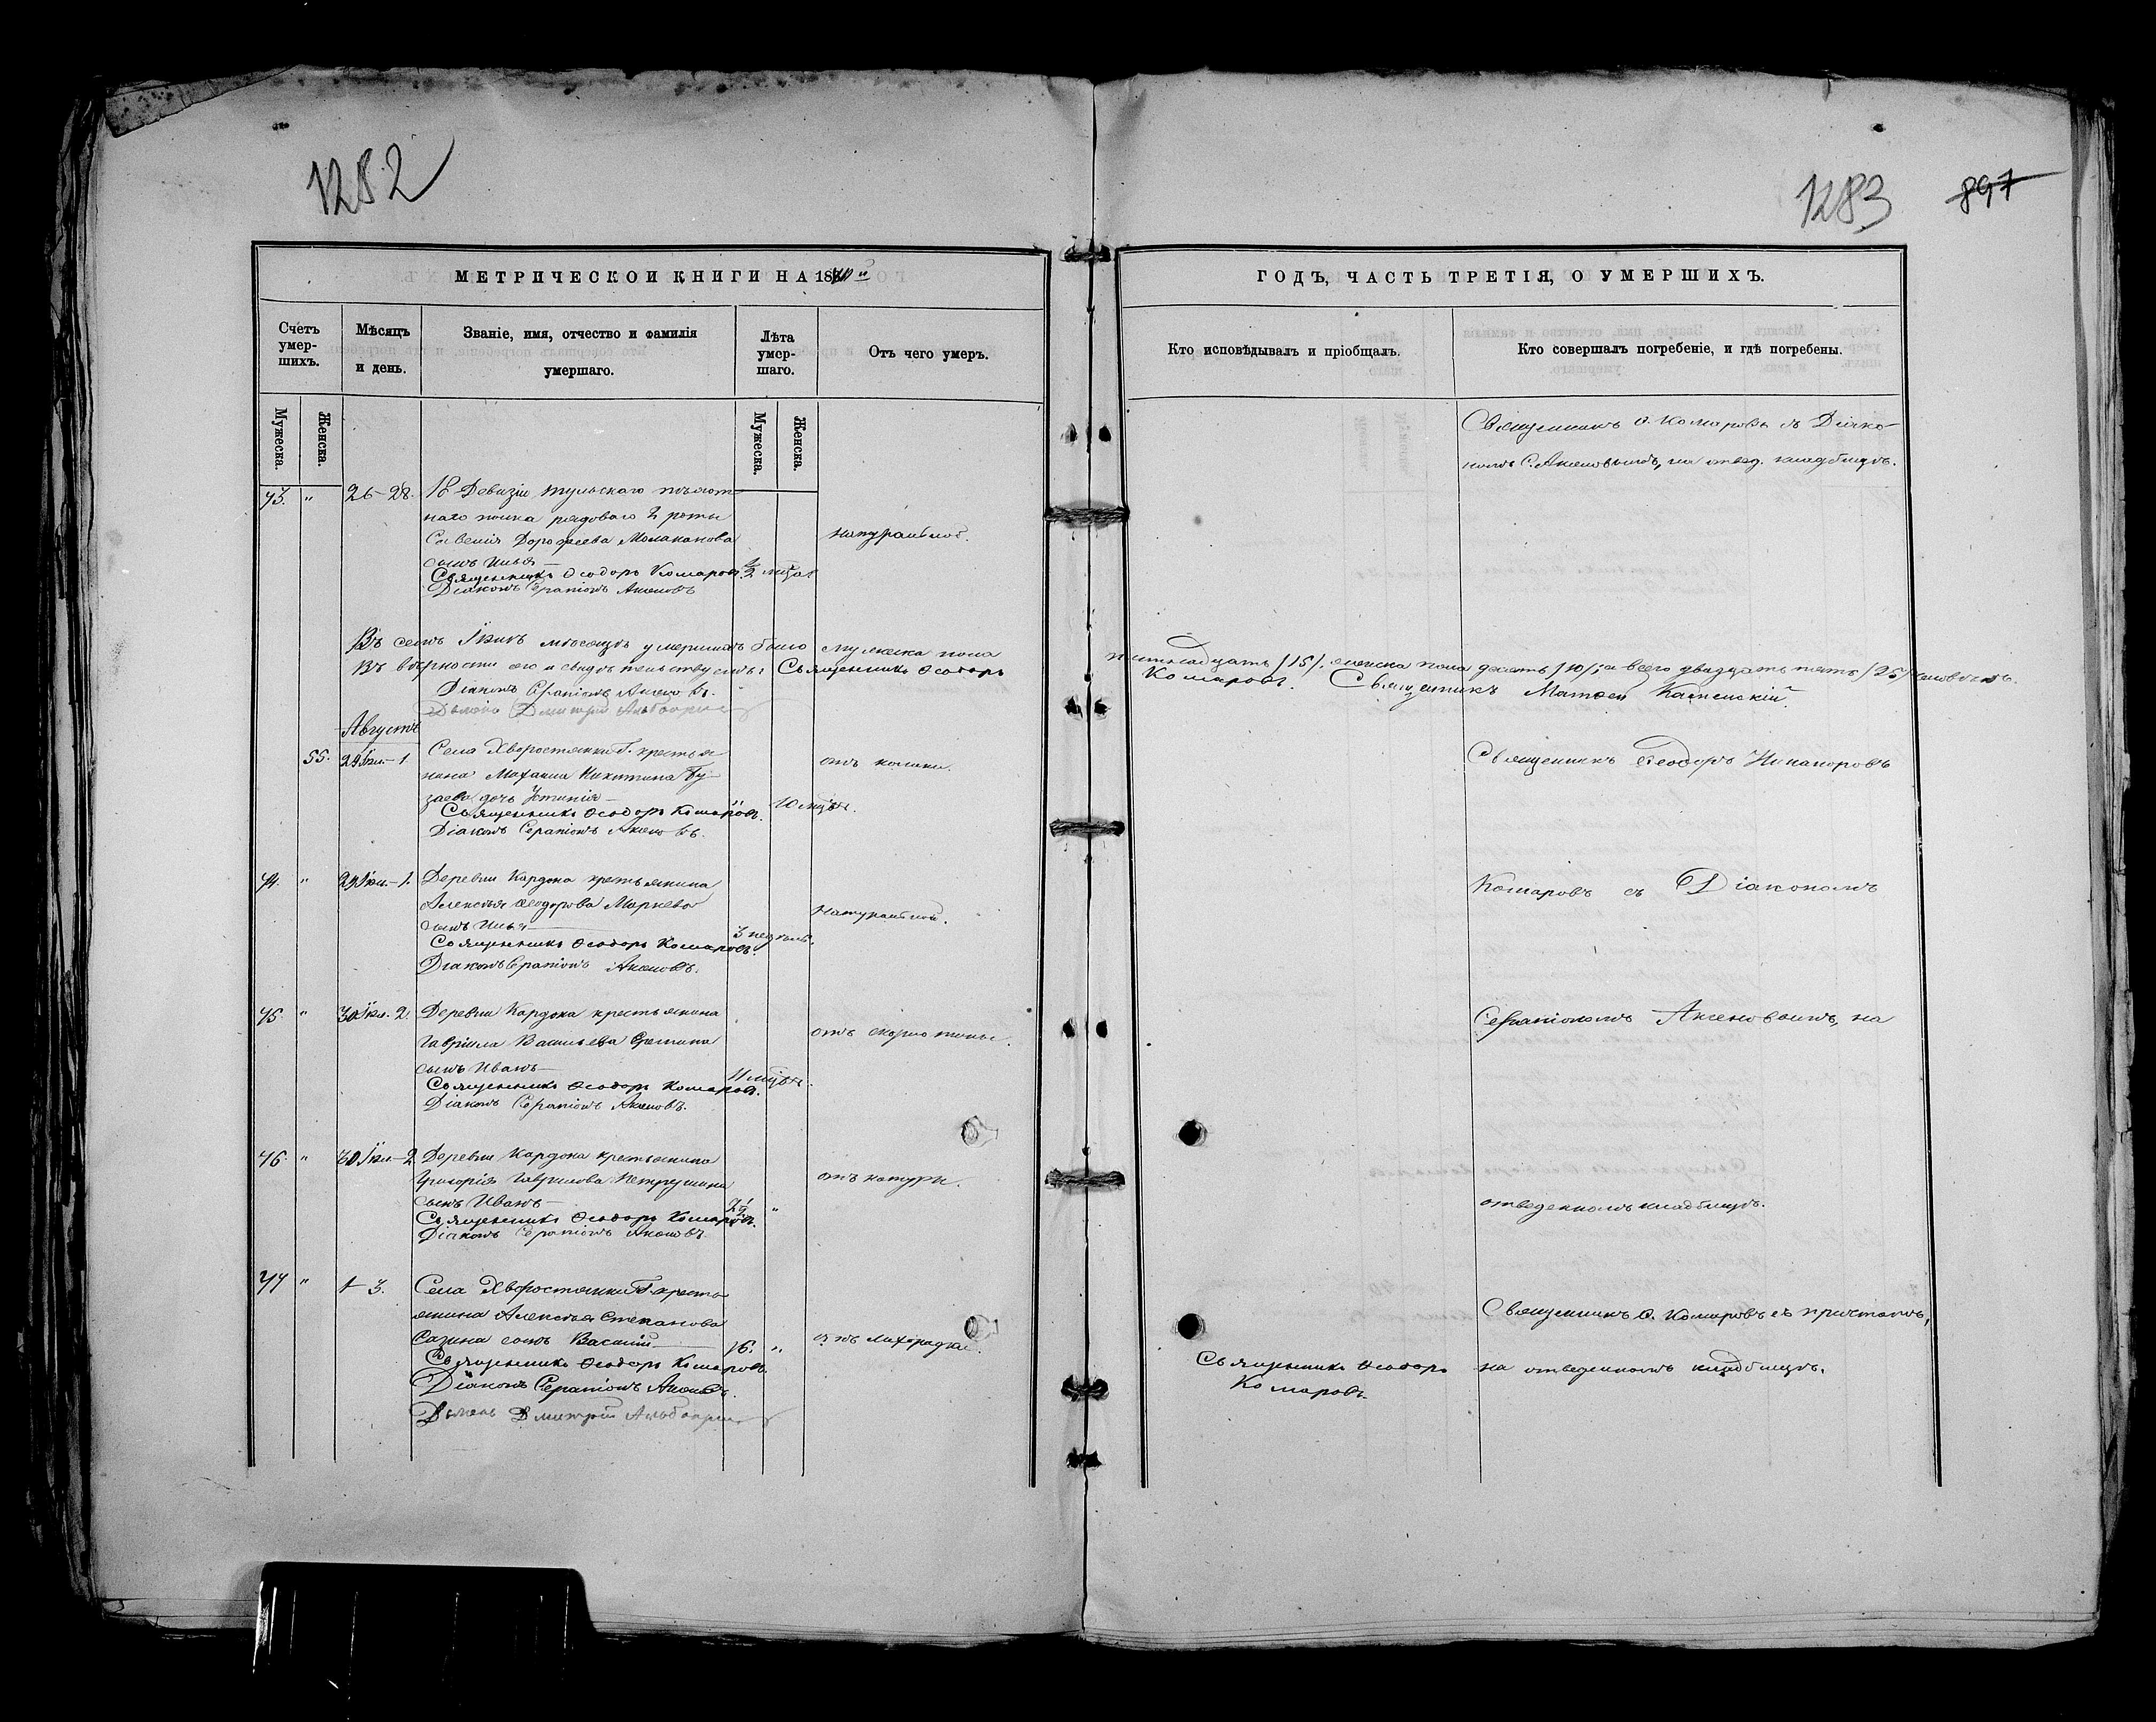 1282
МЕТРИЧЕСКОЙ КНИГИ НА 1870
Счетъ умер-шихъ.
Мѣсяцъ и день.
Званіе, имя, отчество и фамилія умершаго.
Лѣта умер-шаго.
Отъ чего умеръ.
Мужеска.
Женска.
Мужеска.
Женска.
73. " 26-28. 18 Девизіи тульскаго пѣхот-
наго полка рядоваго 2 роты
Савелія Дорофеева Молаканова натуральной.
сынъ Илья 1/2 мѣсяц
Священникъ Ѳеодоръ Комаровъ.
Діаконъ Серапіонъ Аксеновъ
Въ семъ Іюлѣ мѣсяцѣ умершихъ было мужеска пола
Въ вѣрности сего и свидѣтельствуемъ: Священникъ Ѳеодоръ
Діаконъ Серапіонъ Аксеновъ.
Дмитрій
Августъ
55. 29 Іюл.-1. Села Хворостянки Г. крестья-
нина Михаила Никитина Бу- отъ
заева дочь Устинія " 10 мѣся.
Священникъ Ѳеодоръ Комаровъ.
Діаконъ Серапіонъ Аксеновъ.
74. " 29 Іюл.-1. Деревни Кардона крестьянина
Алексѣя Ѳеодорова Маркева натуральной.
сынъ Илья 3 недѣль.
Священникъ Ѳеодоръ Комаровъ.
Діаконъ Серапіонъ Аксеновъ.
75. " 30 Іюл. 2. Деревни Кардона крестьянина
Гавріила Васильева Еремина отъ
сынъ Иванъ 11 мѣся.
Священникъ Ѳеодоръ Комаровъ.
Діаконъ Серапіонъ Аксеновъ.
76. " 30 Іюл.-2 Деревни Кардона крестьянина
Григорія Гаврилова Петрушина отъ натуры.
сынъ Иванъ 2 1/2 "
Священникъ Ѳеодоръ Комаровъ.
Діаконъ Серапіонъ Аксеновъ
77 " 1-3. Села Хворостянки Г. кресть-
янина Алексѣя Степанова
Сазина сынъ Василій 16. " отъ лихорадки.
Священникъ Ѳеодоръ Комаровъ.
Діаконъ Серапіонъ Аксеновъ.
Дмитрій
1283 897
ГОДЪ, ЧАСТЬ ТРЕТІЯ, О УМЕРШИХЪ.
Кто исповѣдывалъ и пріобщалъ.
Кто совершалъ погребеніе, и гдѣ погребены.
Священникъ Ѳ. Комаровъ съ Діако-
номъ С. Аксеновымъ, на отвед. кладбищѣ.
пятнадцать /15/, женска пола десять /10/; а всего двадцать пять /25/ человѣкъ.
Комаровъ. Священникъ Матѳей Каменскій
Священникъ Ѳеодоръ Никаноровъ
Комаровъ съ Діакономъ
Серапіономъ Аксеновымъ, на
отведенномъ кладбищѣ.
Священникъ Ѳ. Комаровъ съ причтомъ,
Священникъ Ѳеодоръ на отведенномъ кладбищѣ.
Комаровъ.